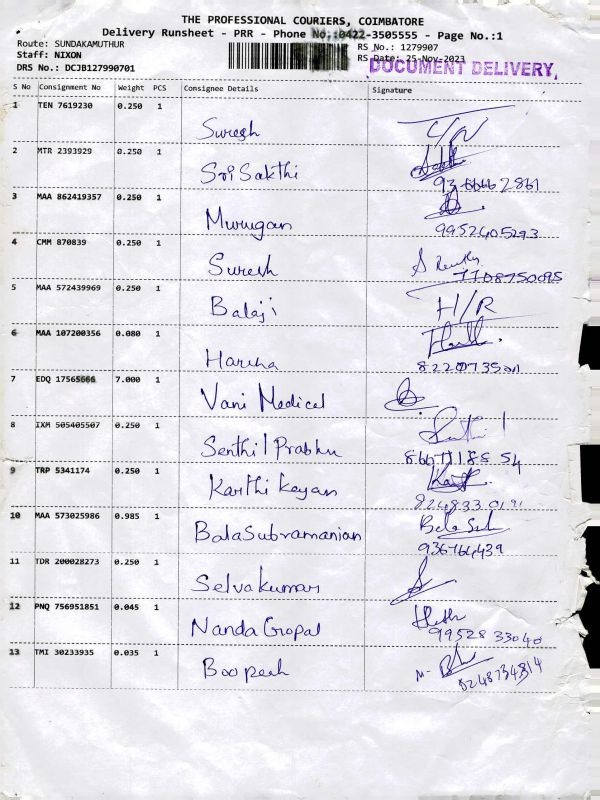 THE PROFESSIONAL COURIERS, COIMBATORE
Delivery Runsheet - PRR - Phone No.:0422-3505555 - Page No.:1
Route: SUNDAKAMUTHUR RS No.: 1279907
Staff: NIXON RS Date: 25-Nov-2023
DRS No.: DCJB127990701 DOCUMENT DELIVERY
S No Consignment No Weight PCS Consignee Details Signature
1 TEN 7619230 0.250 1
Suresh
2 MTR 2393929 0.250 1
Sri Sakthi
3 MAA 862419357 0.250 1
Murugan 9952405293
4 CMM 870839 0.250 1
Suresh 7708750095
5 MAA 572439969 0.250 1
Balaji H/R
6 MAA 107200356 0.080 1
Harsha
7 EDQ 17565666 7.000 1
Vani Medical
8 IXM 505405507 0.250 1
Senthil Prabhu
9 TRP 5341174 0.250 1
Karthi Keyan
10 MAA 573025986 0.985 1
BalaSubramanian
11 TDR 200028273 0.250 1
Selvakumar
12 PNQ 756951851 0.045 1
Nanda Gopal 99528 33040
13 TMI 30233935 0.035 1
Boopesh